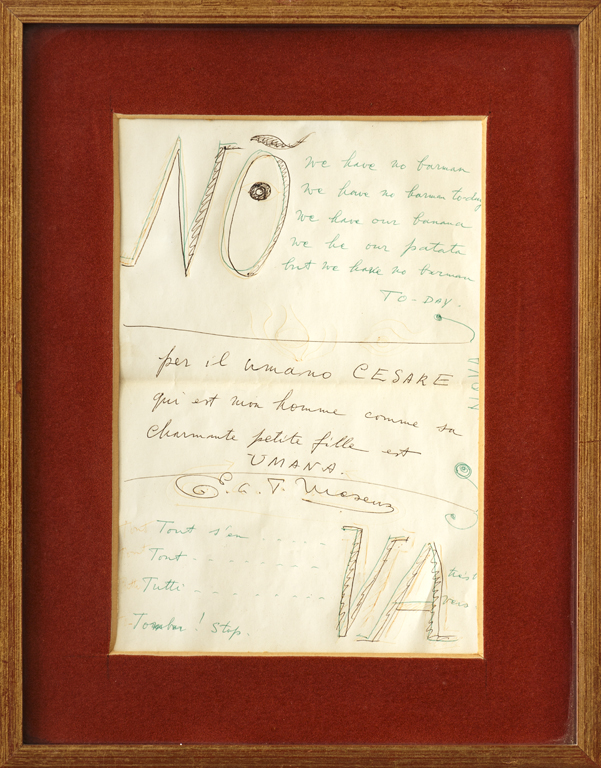 NÕ
we have no barman
we have no barman today
we have our banana
we he our patata
but we have no barman
TO-DAY.
per il umano CESARE
qui est mon homme comme sa
charmante petite fille est
UMANA.
E.L.T. Mesens
NOVA
Tout s'en - - - - - -
Tout - - - - - - - -
Tutti - - - - - - - -
VA
Tombor! Stop.